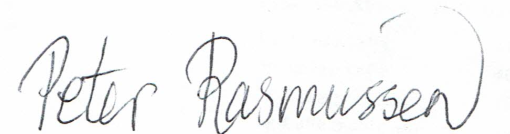 Peter Rasmussen